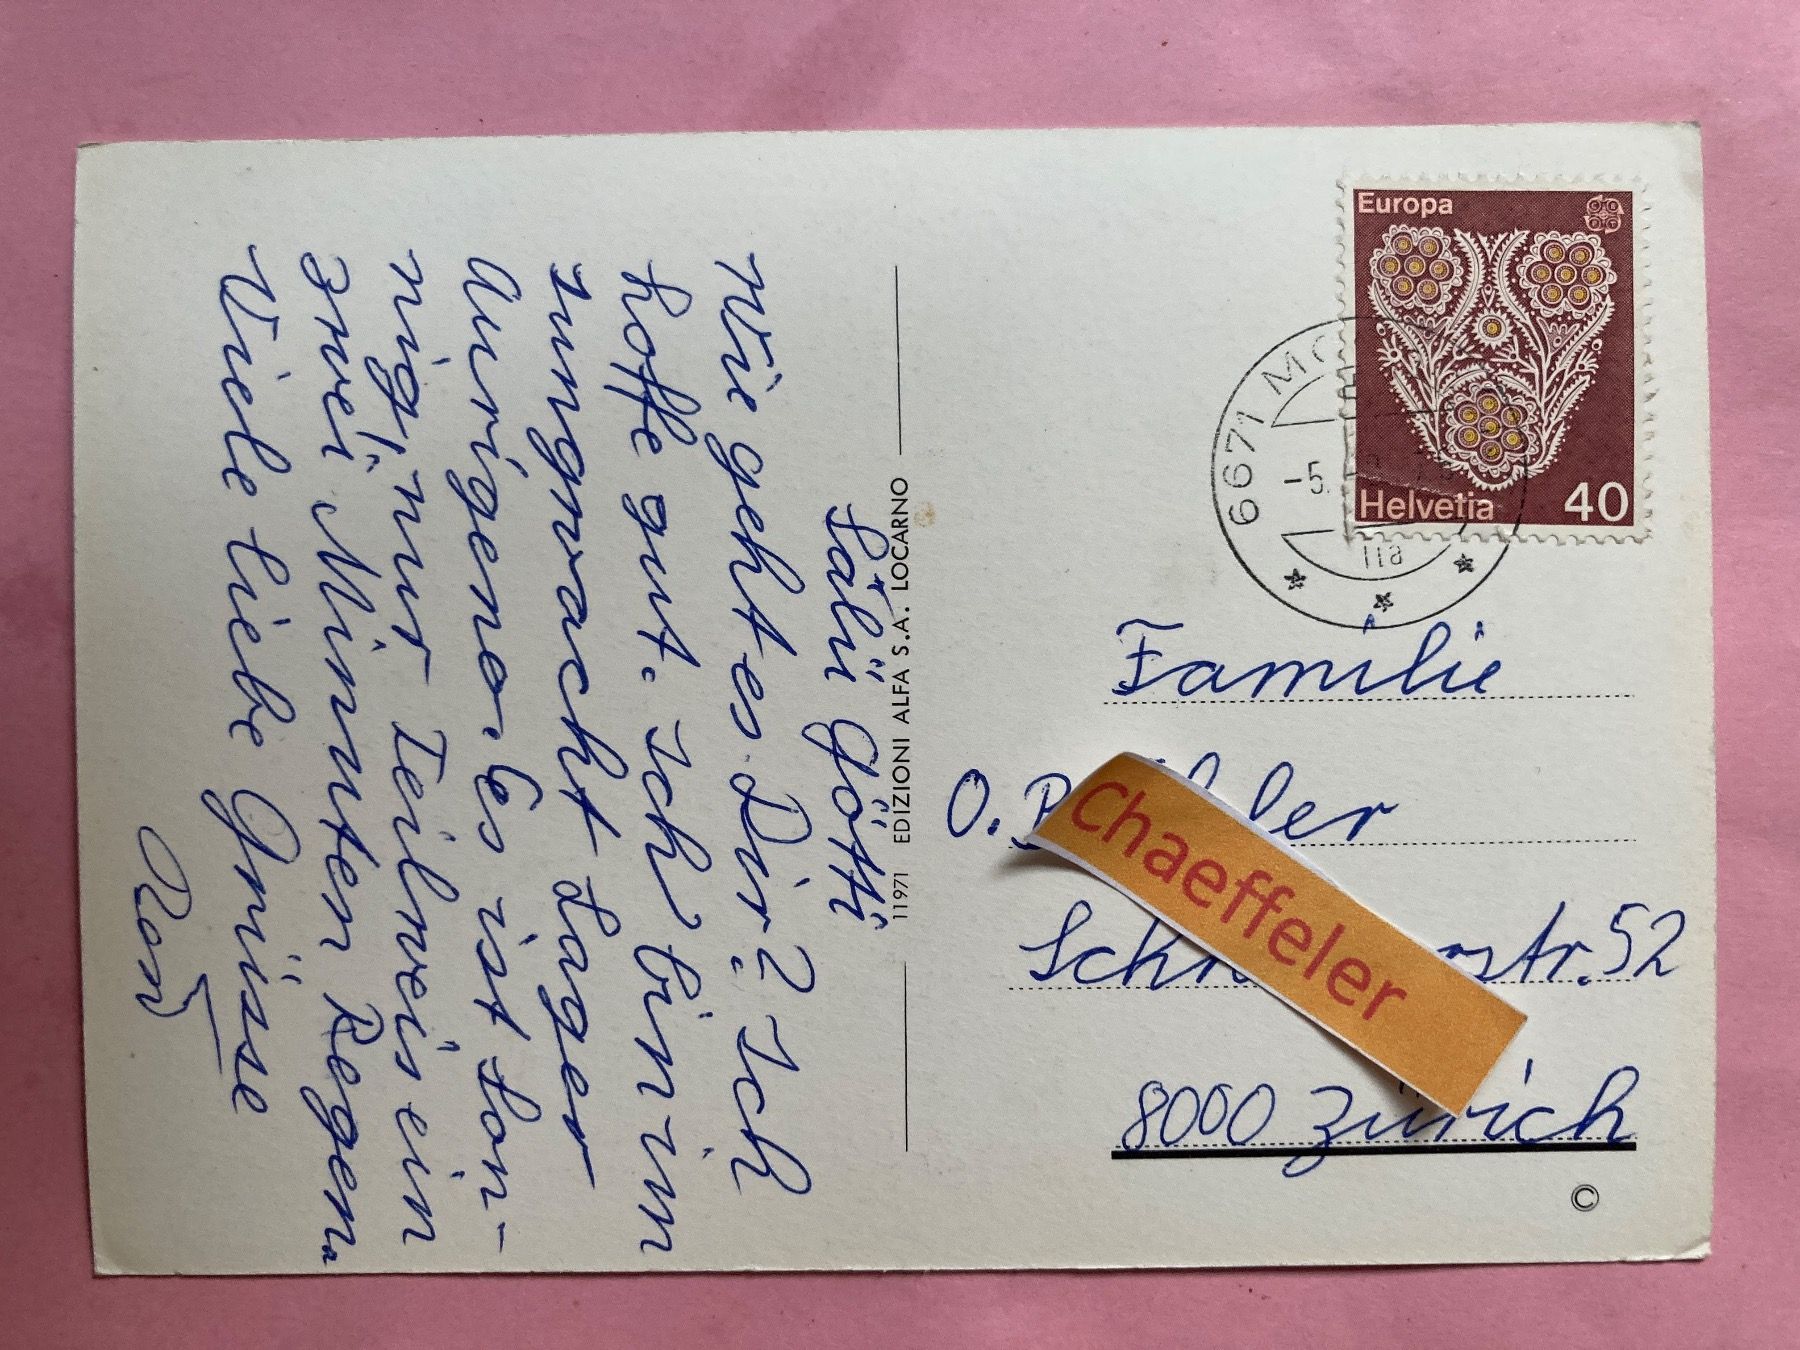 Sälü Götti
Wie geht es Dir? Ich
hoffe gut. Ich bin im
Jungwacht Lager
Aurigeno. Es ist son-
nig, nur Teilweis ein
zwei Minuten Regen.
Viele liebe Grüsse
11971 EDIZIONI ALFA S.A. LOCARNO
Europa
Helvetia 40
6671
-5.
Familie
O.
chaeffeler
str. 52
8000 Zürich
©